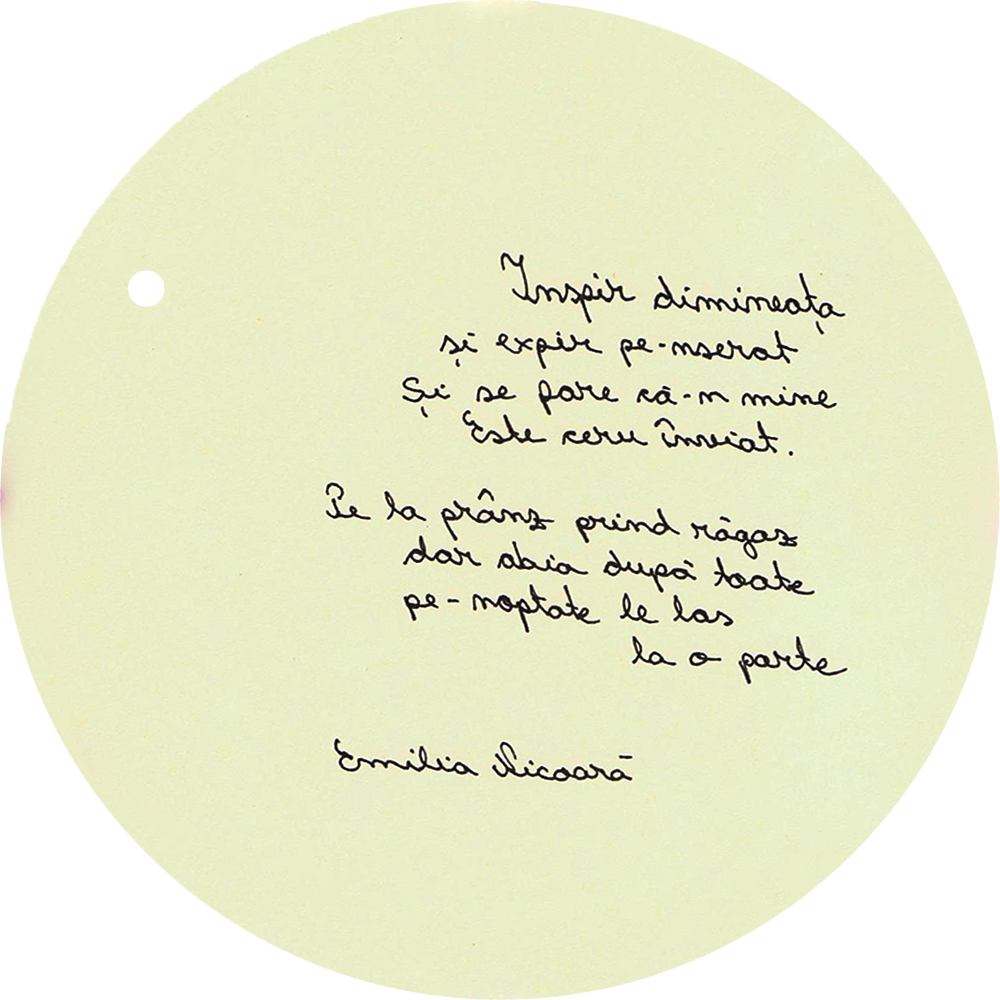 Inspir dimineața
și expir pe-nserat
Și se pare că-n mine
Este ceru înviat.
Pe la prânz prind răgaz
dar abia după toate
pe-noptate le las
la o parte
Emilia Nicoară